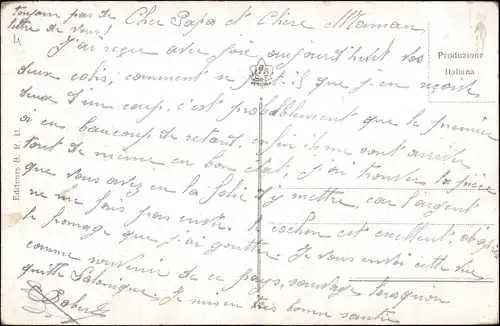 toujours pas de
lettre de vous!
Cher Papa et Chère Maman,
J'ai reçu avec joie aujourd'hui vos
deux colis, comment se fait-il que j'en reçois
deux d'un coup, c'est probablement que le premier
a eu beaucoup de retard, enfin ils me sont arrivés
tout de même en bon état, j'ai trouvé la pièce
que vous avez eu la folie d'y mettre, car l'argent
ne me fais pas envie. le cochon est excellent, d'après
le fromage que j'ai goutté. Je vous envoi cette vue
comme souvenir de ce pays sauvage lorsqu'on
quitte Salonique. Je suis en très bonne santé
Robert
Produzione
Italiana
Editeors B. R. D.